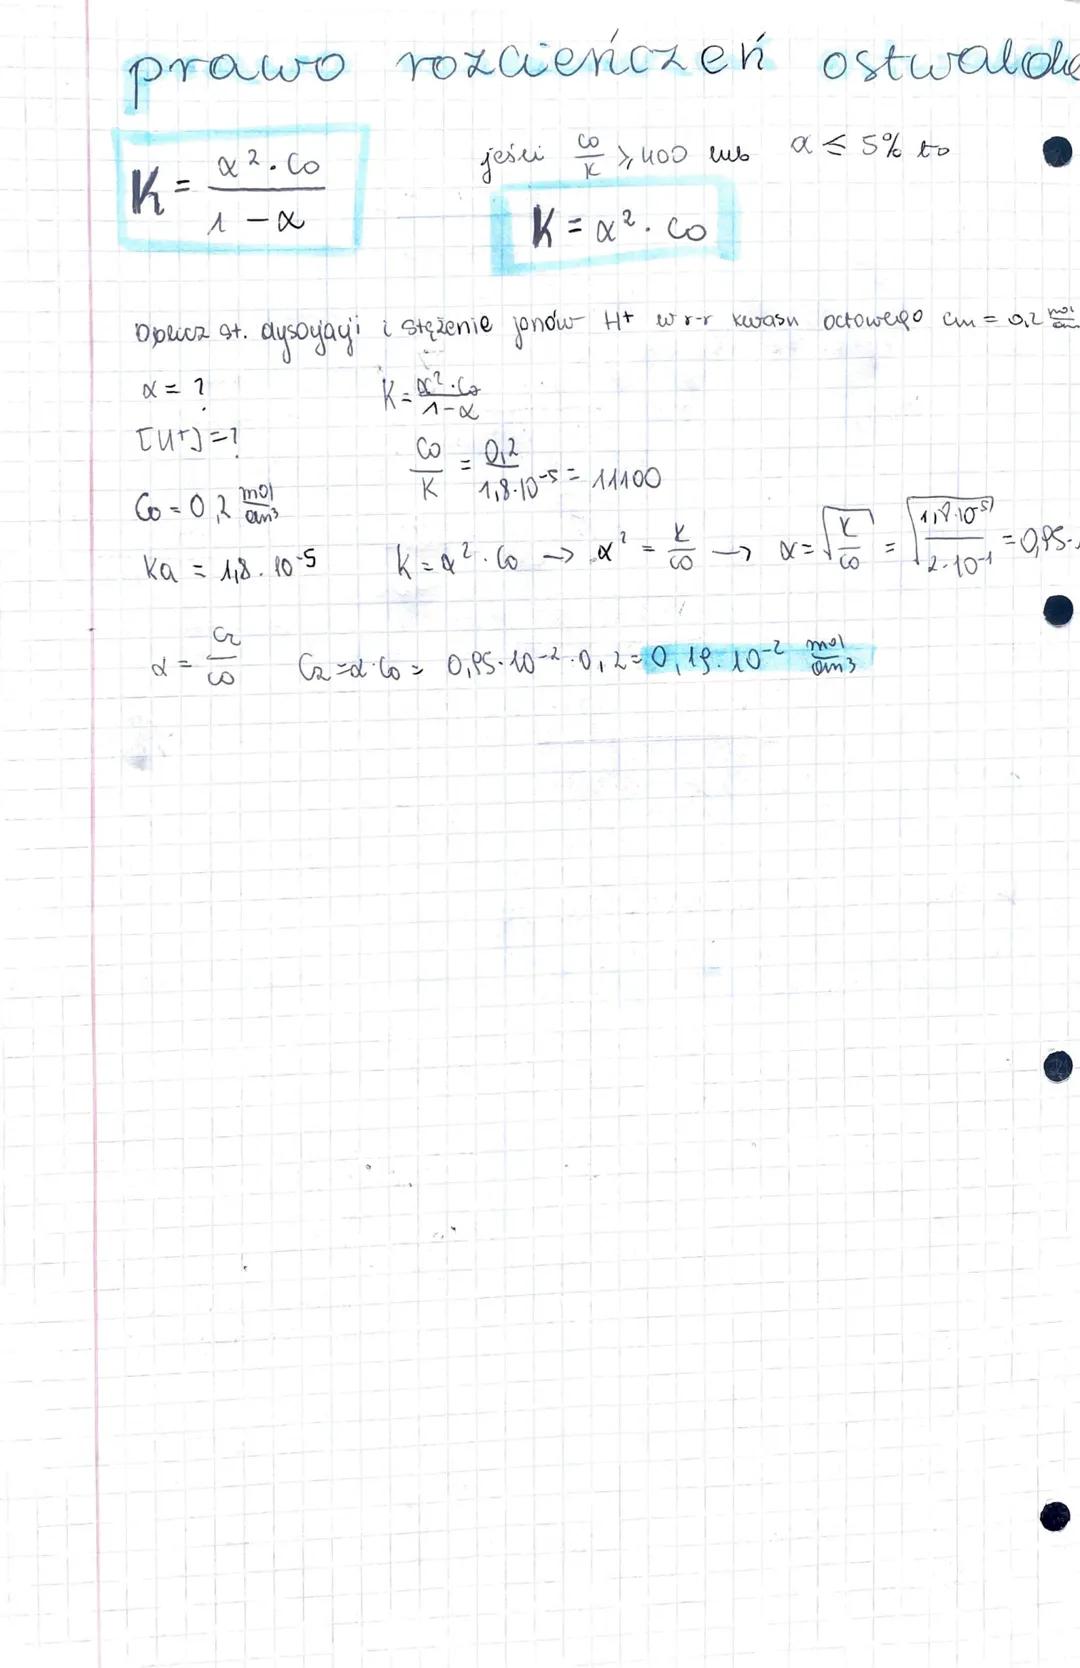 prawo rozcieńczeń ostwalda
K = α²·Co / 1-α
jeśli Co/K ≥ 400 lub α ≤ 5% to
K = α²·Co
Oblicz st. dysocjacji i stężenie jonów H+ w r-r kwasu octowego cm = 0,2 mol/dm
α = ?
K = α²·Co / 1-α
[H+] = ?
Co/K = 0,2 / 1,8·10⁻⁵ = 11100
Co = 0,2 mol/dm³
Ka = 1,8·10⁻⁵
K = α²·Co → α² = K/Co → α = √K/Co = √1,8·10⁻⁵ / 2·10⁻¹ = 0,95·
α = Cz/Co
Cz = α·Co = 0,95·10⁻²·0,2 = 0,19·10⁻² mol/dm³